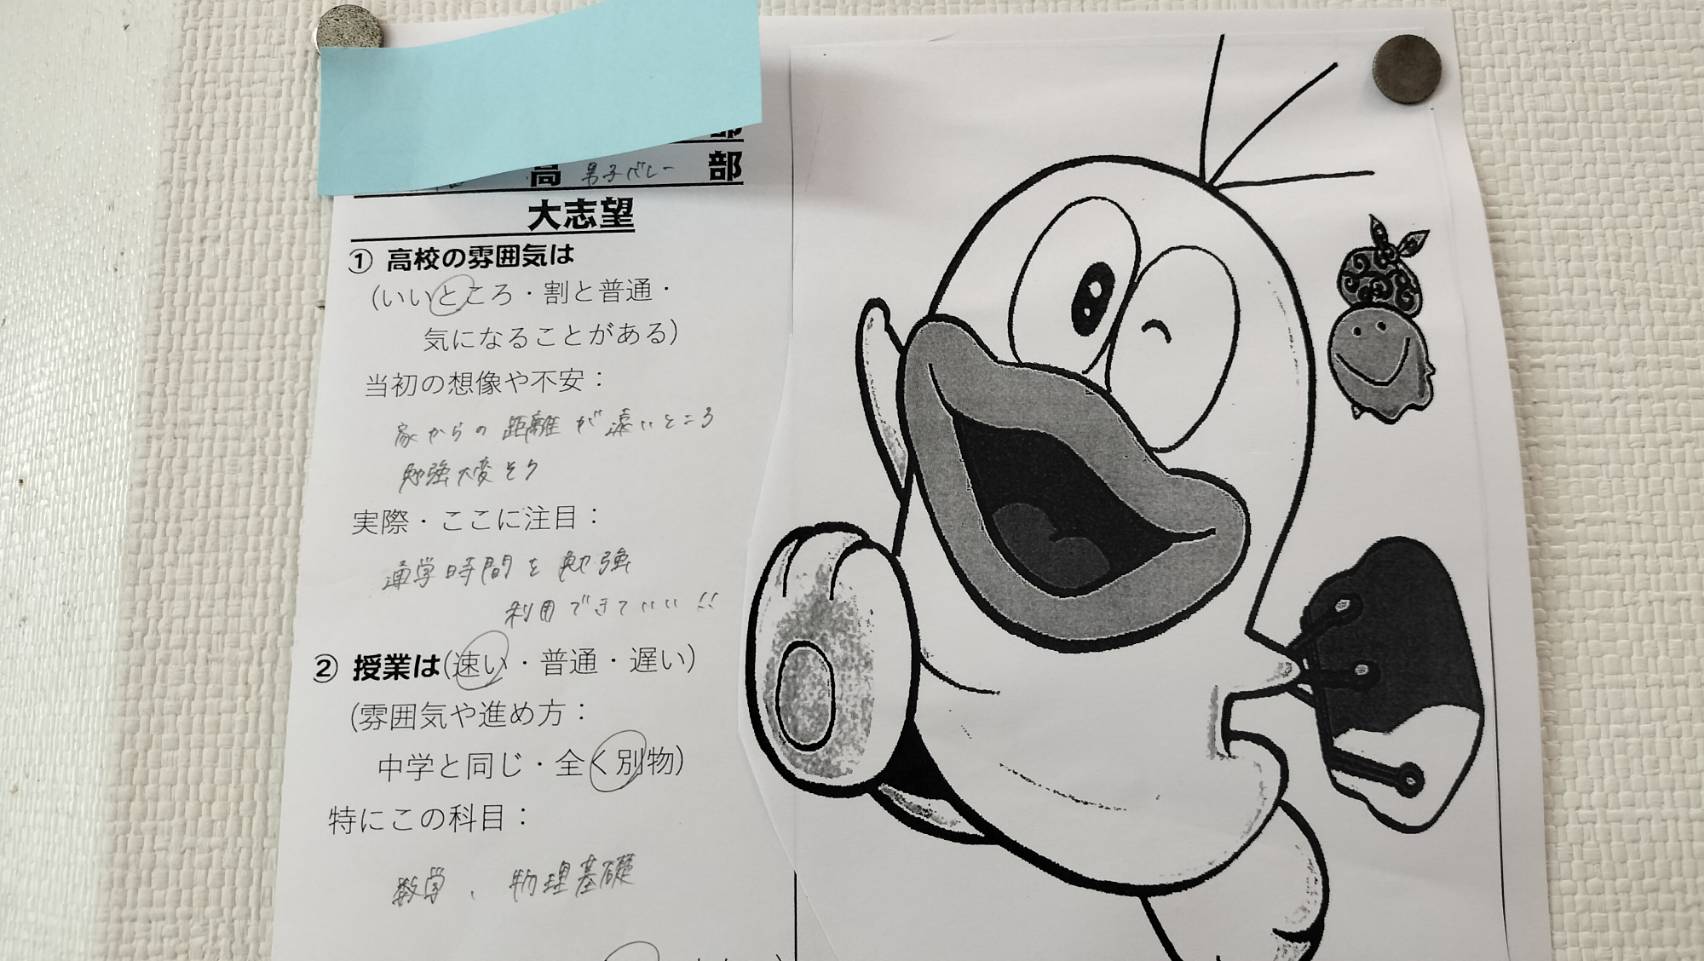 高 男子バレー 部
大志望
① 高校の雰囲気は
(いいところ・割と普通・
気になることがある)
当初の想像や不安：
家からの距離が遠いところ
勉強大変そう
実際・ここに注目：
通学時間を勉強
利用できていい!!
② 授業は(速い・普通・遅い)
(雰囲気や進め方：
中学と同じ・全く別物)
特にこの科目：
数学、物理基礎